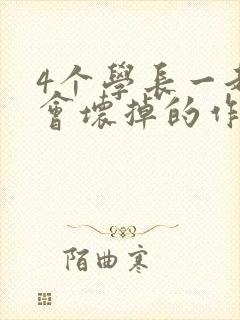 4个學長一
會壞掉的作
陌曲寒